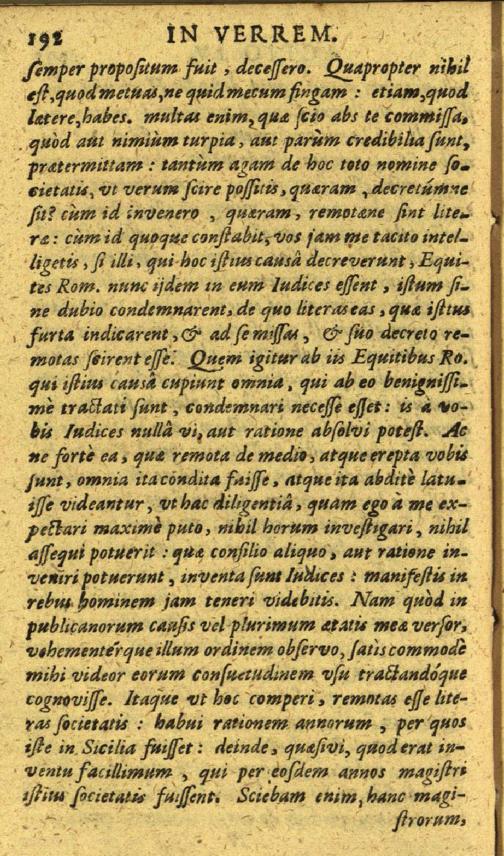 192 IN VERREM.
semper propositum fuit, decessero. Quapropter nihil
est, quod metuas, ne quid mecum fingam: etiam, quod
lætere, habes. multas enim, quæ scio abs te commissa,
quòd aut nimiùm turpia, aut parùm credibilia sunt,
prætermittam: tantùm agam de hoc toto nomine so-
cietatis, vt verum scire possitis, quæram, decretúmne
sit? cùm id invenero, quæram, remotæne sint lite-
ræ: cùm id quoque constabit, vos jam me tacito intel-
ligetis, si illi, qui hoc istius causâ decreverunt, Equi-
tes Rom. nunc ijdem in eum Iudices essent, istum si-
ne dubio condemnarent, de quo literas eas, quæ istius
furta indicarent, & ad se missas, & suo decreto re-
motas scirent esse. Quem igitur ab iis Equitibus Ro.
qui istius causâ cupiunt omnia, qui ab eo benignissi-
mè tractati sunt, condemnari necesse esset: is à vo-
bis Iudices nullâ vi, aut ratione absolvi potest. Ac
ne fortè ea, quæ remota de medio, atque erepta vobis
sunt, omnia ita condita fuisse, atque ita abditè latu-
isse videantur, vt hac diligentiâ, quam ego à me ex-
pectari maximè puto, nihil horum investigari, nihil
assequi potuerit: quæ consilio aliquo, aut ratione in-
veniri potuerunt, inventa sunt Iudices: manifestis in
rebus hominem jam teneri videbitis. Nam quòd in
publicanorum causis vel plurimum ætatis meæ versor,
vehementérque illum ordinem observo, satis commodè
mihi videor eorum consuetudinem vsu tractandóque
cognovisse. Itaque vt hoc comperi, remotas esse lite-
ras societatis: habui rationem annorum, per quos
iste in Sicilia fuisset: deinde, quæsivi, quod erat in-
ventu facillimum, qui per eosdem annos magistri
istius societatis fuissent. Sciebam enim, hanc magi-
strorum,